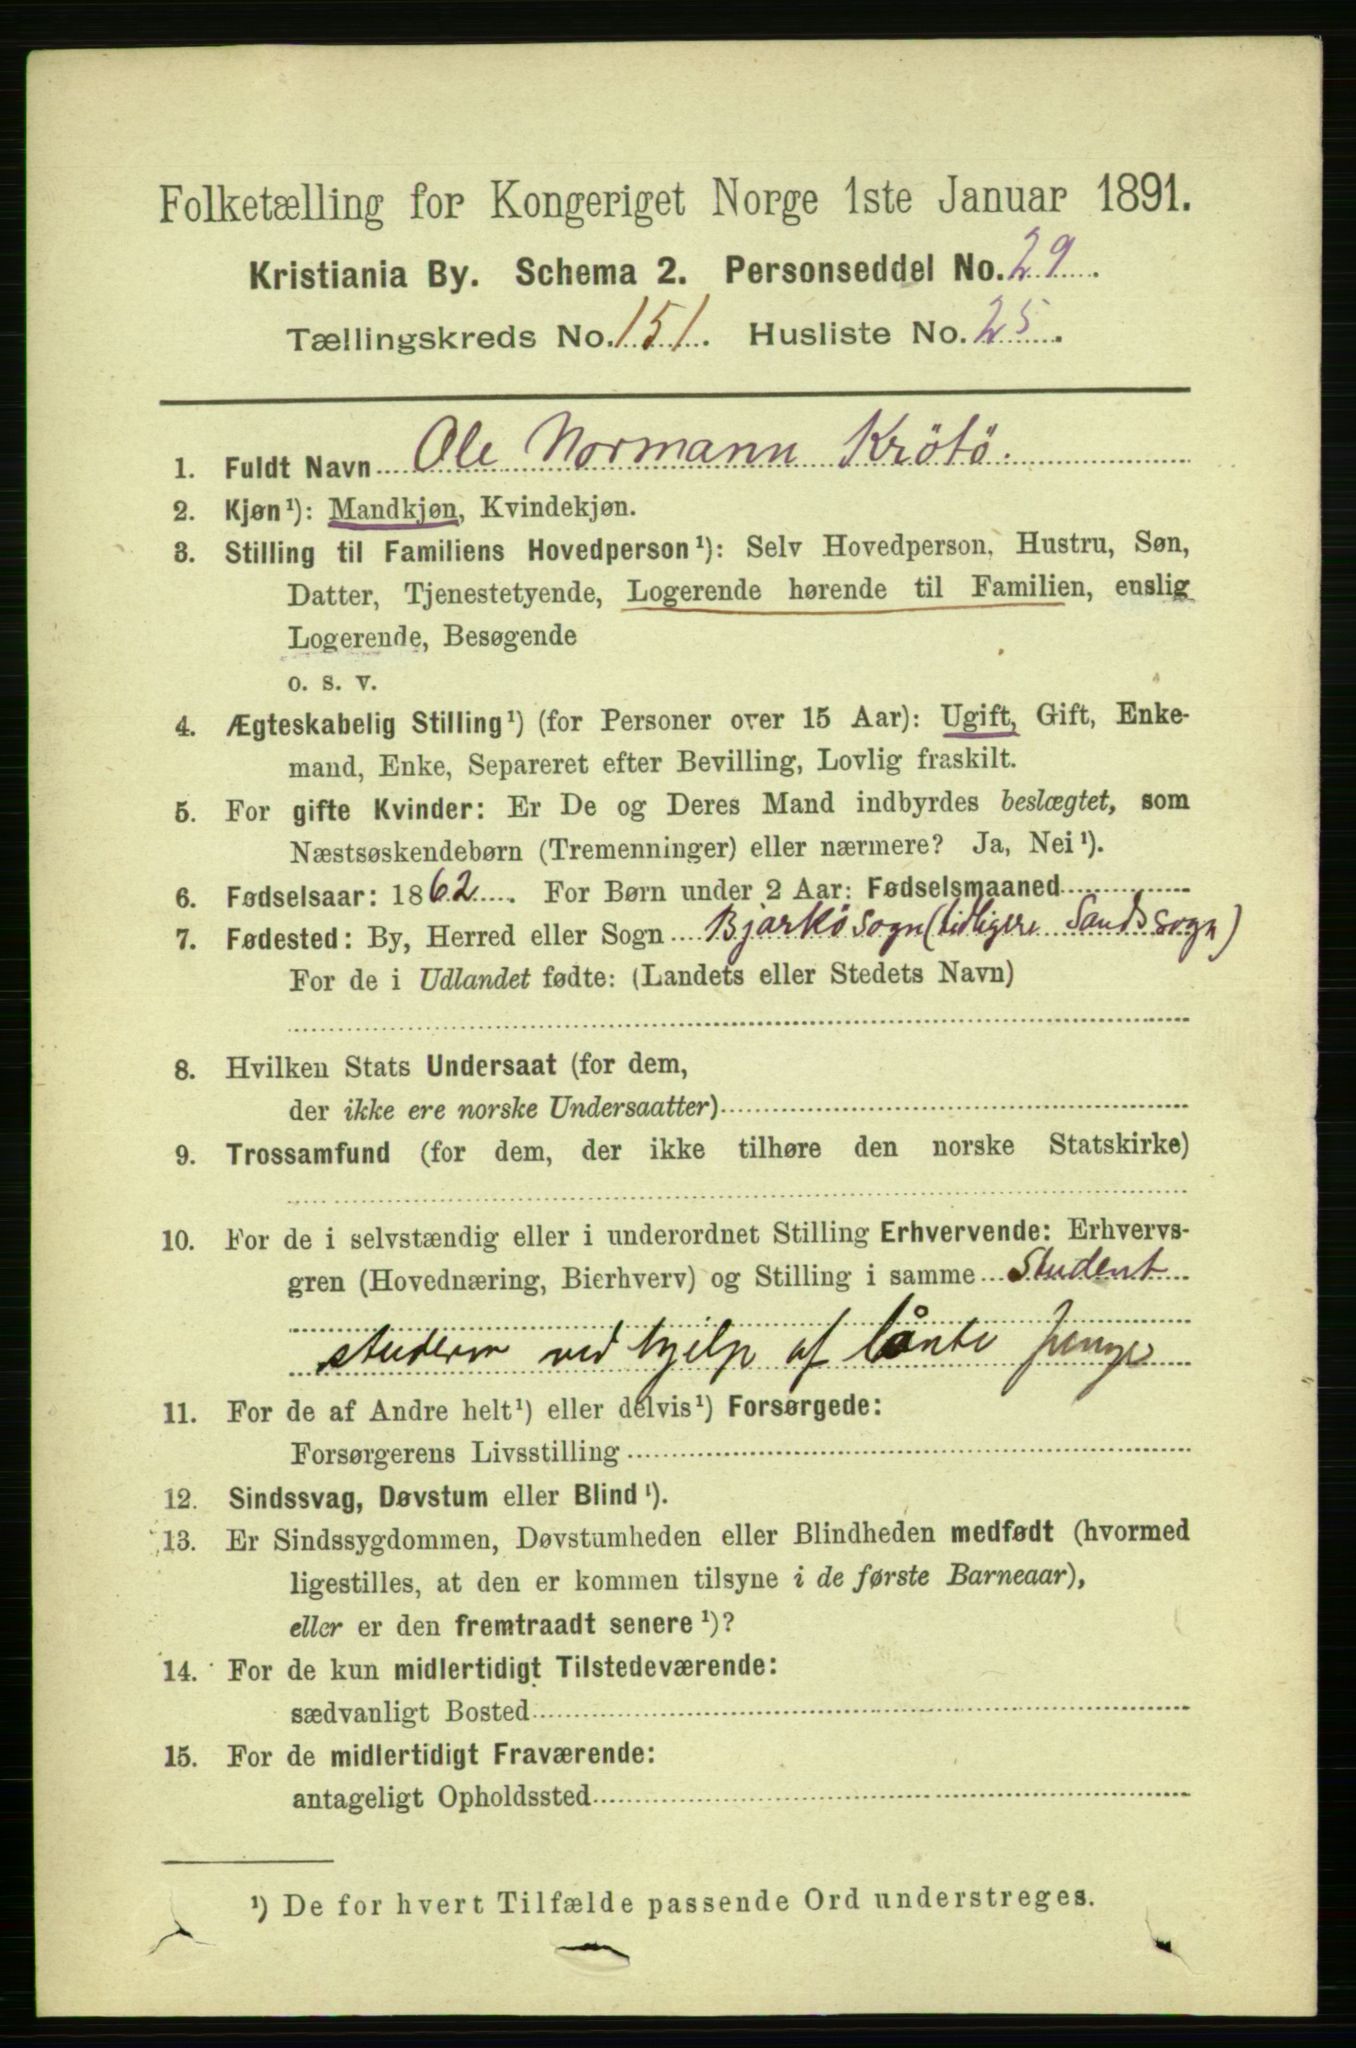 Folketælling for Kongeriget Norge 1ste Januar 1891.
Kristiania By. Schema 2. Personseddel No. 29.
Tællingskreds No. 151. Husliste No. 25.
1. Fuldt Navn Ole Normann Krötö.
2. Kjøn¹): Mandkjøn, Kvindekjøn.
3. Stilling til Familiens Hovedperson¹): Selv Hovedperson, Hustru, Søn,
Datter, Tjenestetyende, Logerende hørende til Familien, enslig
Logerende, Besøgende
o. s. v.
4. Ægteskabelig Stilling¹) (for Personer over 15 Aar): Ugift, Gift, Enke-
mand, Enke, Separeret efter Bevilling, Lovlig fraskilt.
5. For gifte Kvinder: Er De og Deres Mand indbyrdes beslægtet, som
Næstsøskendebørn (Tremenninger) eller nærmere? Ja, Nei¹).
6. Fødselsaar: 1862. For Børn under 2 Aar: Fødselsmaaned
7. Fødested: By, Herred eller Sogn Bjarkö sogn (tidligere Sands sogn)
For de i Udlandet fødte: (Landets eller Stedets Navn)
8. Hvilken Stats Undersaat (for dem,
der ikke ere norske Undersaatter)
9. Trossamfund (for dem, der ikke tilhøre den norske Statskirke)
10. For de i selvstændig eller i underordnet Stilling Erhvervende: Erhvervs-
gren (Hovednæring, Bierhverv) og Stilling i samme Student
studerer ved hjelp af lånte penge
11. For de af Andre helt¹) eller delvis¹) Forsørgede:
Forsørgerens Livsstilling
12. Sindssvag, Døvstum eller Blind¹).
13. Er Sindssygdommen, Døvstumheden eller Blindheden medfødt (hvormed
ligestilles, at den er kommen tilsyne i de første Barneaar),
eller er den fremtraadt senere¹)?
14. For de kun midlertidigt Tilstedeværende:
sædvanligt Bosted
15. For de midlertidigt Fraværende:
antageligt Opholdssted
¹) De for hvert Tilfælde passende Ord understreges.